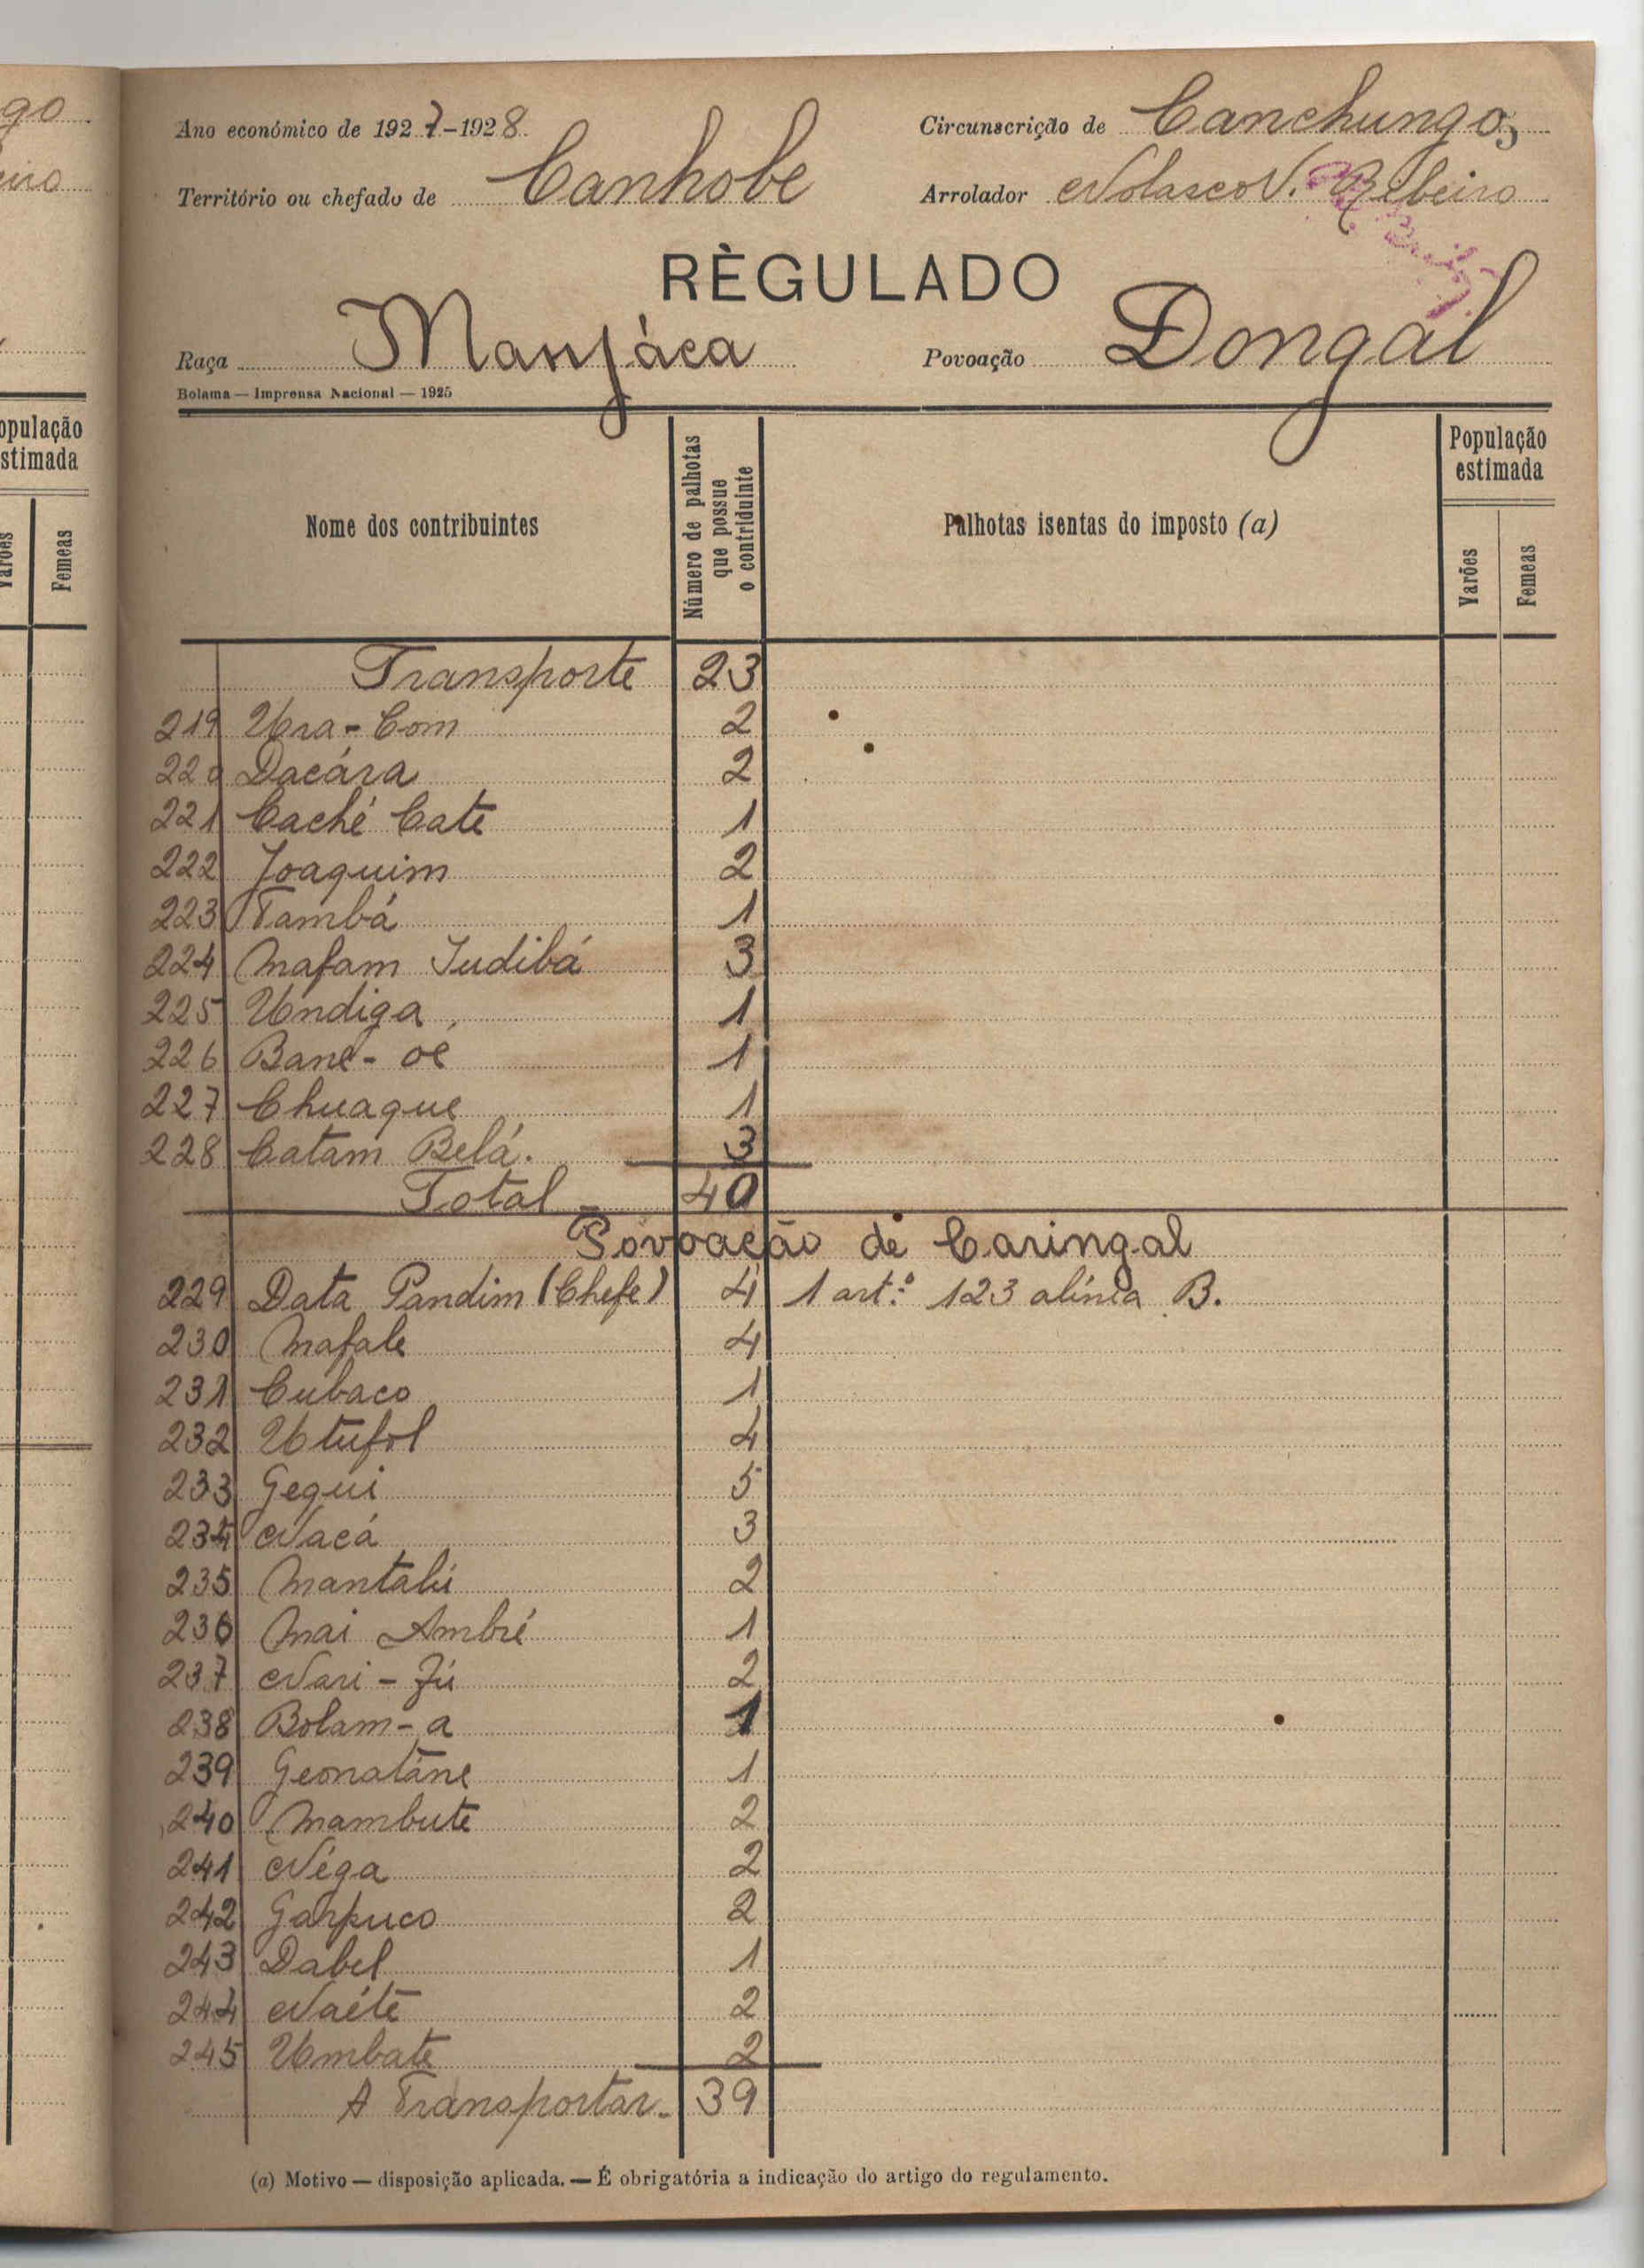 go
eiro
opulação
stimada
Varões
Femeas
Ano económico de 1927-1928
Circunscrição de Canchungo,
Território ou chefado de Canhobe
Arrolador Nolasco V. Ribeiro
RÈGULADO
Raça Manjáca
Povoação Dongal
Bolama — Imprensa Nacional — 1925
Nome dos contribuintes
Número de palhotas que possue o contriduinte
Palhotas isentas do imposto (a)
População estimada
Varões
Femeas
Transporte 23
219 Ura-Com 2
220 Dacára 2
221 Caché Cate 1
222 Joaquim 2
223 Tambá 1
224 Mafam Judibá 3
225 Undiga 1
226 Bane-oé 1
227 Chuaque 1
228 Catam Belá. 3
Total 40
Povoação de Caringal
229 Data Pandim (Chefe) 4 1 art.º 123 alínea B.
230 Mafale 4
231 Cubaco 1
232 Utufol 4
233 Gequi 5
234 Nacá 3
235 Mantalú 2
236 Mai Ambré 1
237 Nari-Jú 2
238 Bolam-a 1
239 Geonatáne 1
240 Mambute 2
241 Néga 2
242 Garpuco 2
243 Dabel 1
244 Naéte 2
245 Umbate 2
A Transportar- 39
(a) Motivo — disposição aplicada. — É obrigatória a indicação do artigo do regulamento.